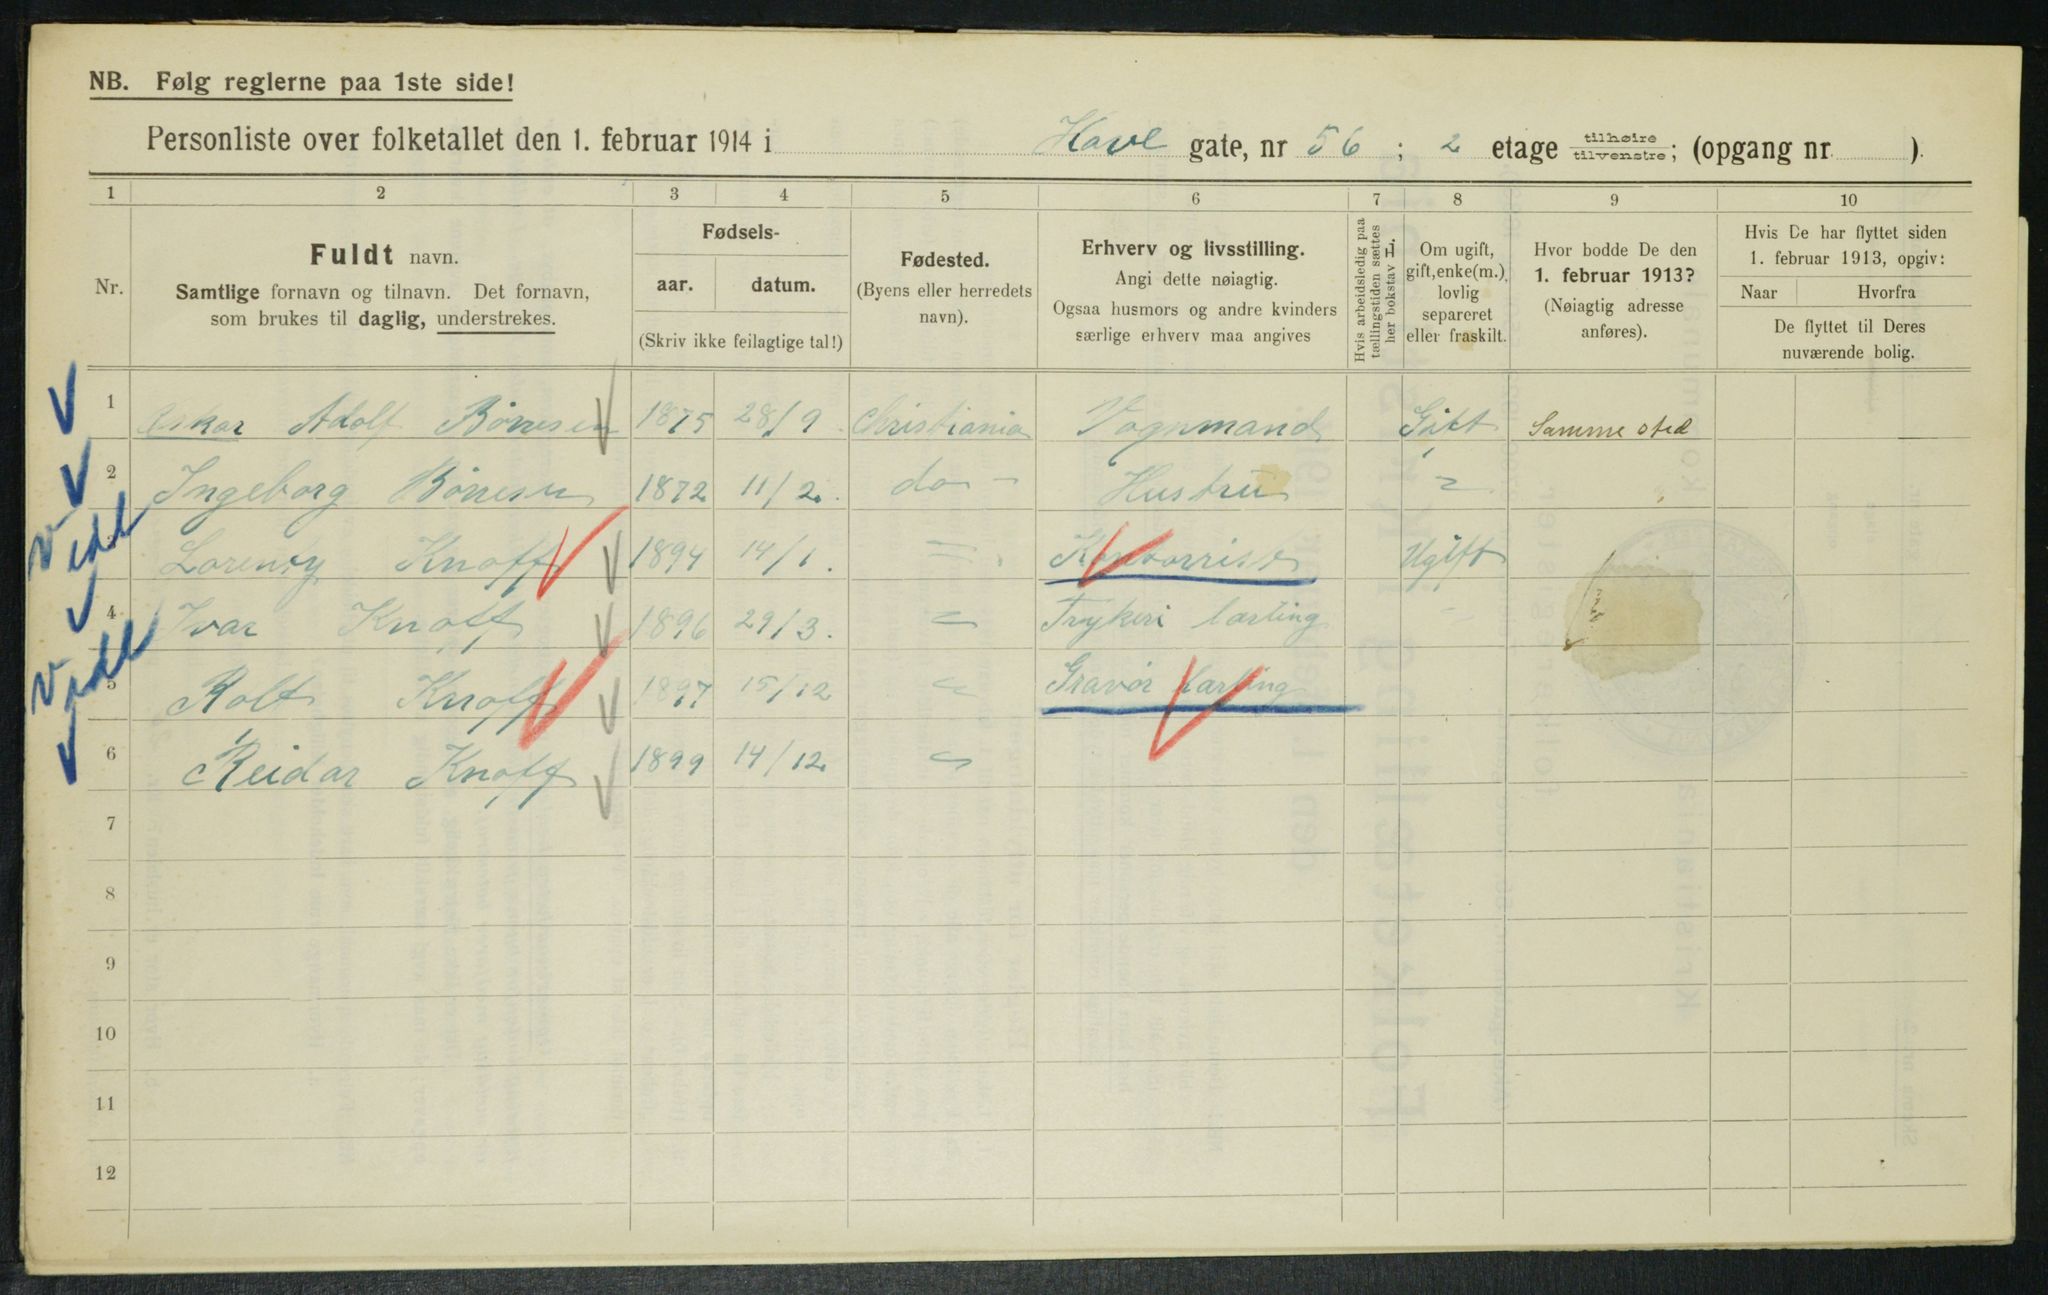 NB. Følg reglerne paa 1ste side!
Personliste over folketallet den 1. februar 1914 i Have gate, nr 56 ; 2 etage tilhøire tilvenstre; (opgang nr ).
1 2 3 4 5 6 7 8 9 10
Nr.
Fuldt navn.
Samtlige fornavn og tilnavn. Det fornavn,
som brukes til daglig, understrekes.
Fødsels-
aar. datum.
(Skriv ikke feilagtige tal!)
Fødested.
(Byens eller herredets
navn).
Erhverv og livsstilling.
Angi dette nøiagtig.
Ogsaa husmors og andre kvinders
særlige erhverv maa angives
Hvis arbeidsledig paa
tællingstiden sættes
her bokstav L.
Om ugift,
gift, enke(m.),
lovlig
separeret
eller fraskilt.
Hvor bodde De den
1. februar 1913?
(Nøiagtig adresse
anføres).
Hvis De har flyttet siden
1. februar 1913, opgiv:
Naar Hvorfra
De flyttet til Deres
nuværende bolig.
1 Oskar Adolf Börresen 1875 28/9 Christiania Vognmand Gift Samme sted
2 Ingeborg Börresen 1872 11/2. do - Hustru "
3 Lorenty Knoff 1894 14/1. " Kontorrist Ugift
4 Ivar Knoff 1896 29/3. " Trykeri lærling "
5 Rolf Knoff 1897 15/12 " Gravör lærling
6 Reidar Knoff 1899 14/12 "
7
8
9
10
11
12